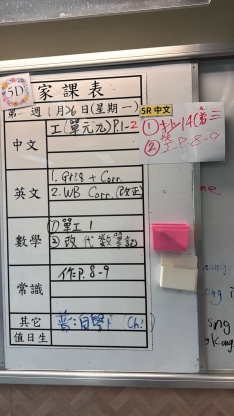 5D
家課表
第一週 1月26日(星期一)
5R 中文
中文
工(單元九)P.1-2
② 工-P.8-9
英文
1. Corr.
2. WB Corr. (改正)
數學
① 單工 1
② 改 代數筆記
常識
作P.8-9
其它
普:自學 Ch1
值日生